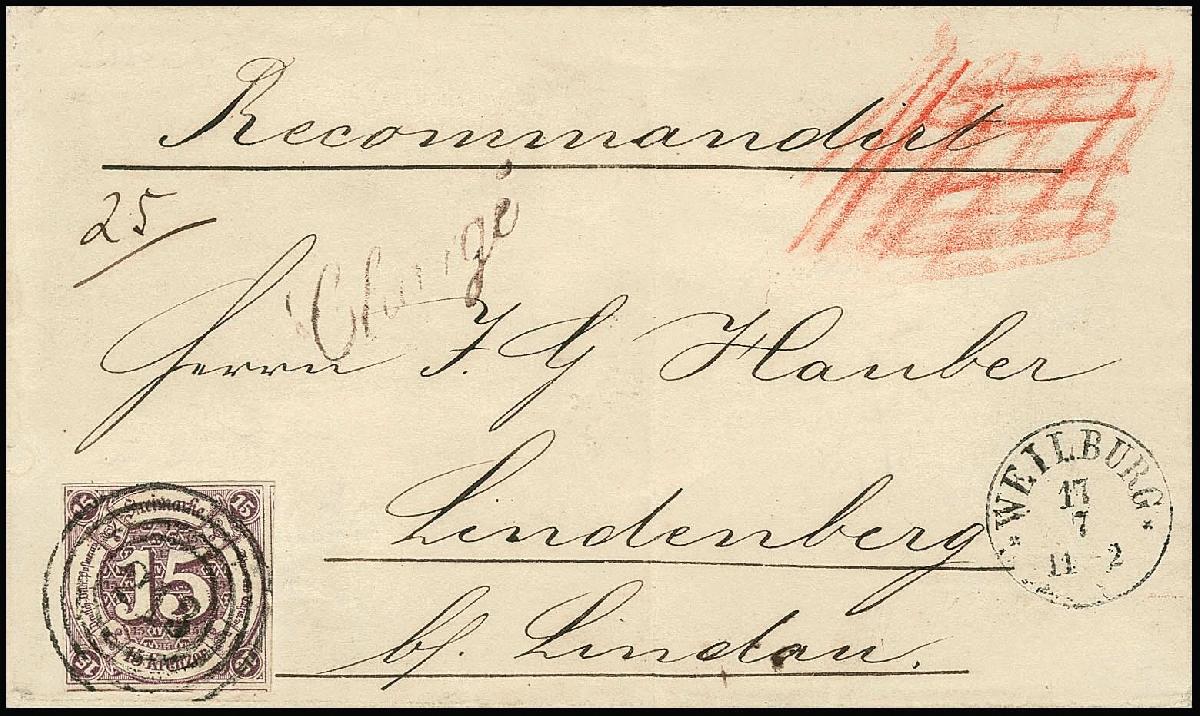 Recommandirt
25
Chargé
Herrn J. G Hauber
Lindenberg
b/. Lindau.
WEILBURG
17
7
11 2
15 15
Freimarke
15
15 Kreuzer
15 15